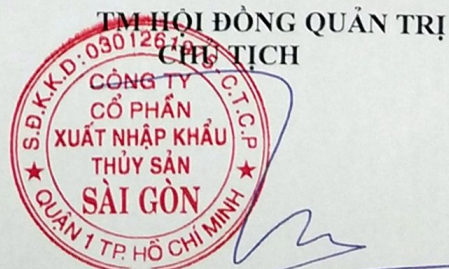 TM HỘI ĐỒNG QUẢN TRỊ
CHỦ TỊCH
S.Đ.K.K.D: 03012619
C.T.C.P
CÔNG TY
CỔ PHẦN
XUẤT NHẬP KHẨU
THỦY SẢN
SÀI GÒN
QUẬN 1 TP. HỒ CHÍ MINH